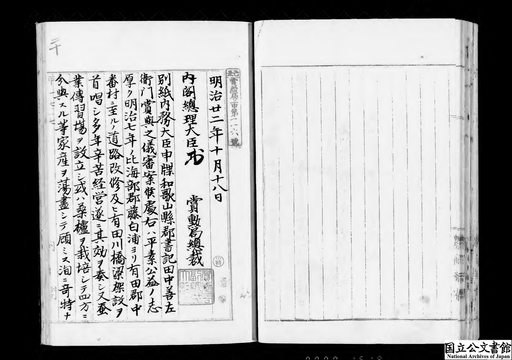 三十
明治廿二年十月十八日
賞勲局總裁
内閣總理大臣
別紙内務大臣申牒和歌山縣郡書記田中善左
衛門賞與之儀審案候處右ハ平素公益ノ志
厚ク明治七年ノ比海部郡藤白浦ヨリ有田郡中
番村ニ至ルノ道路改修及ヒ有田川橋梁架設ヲ
首唱シ多年辛苦経営遂ニ其効ヲ奏シ又蚕
業傳習場ヲ設立シ或ハ桑樝ヲ栽培シテ四方ニ
分與スル等家産ヲ蕩盡シテ顧ミス洵ニ奇特ナ
国立公文書館
National Archives of Japan